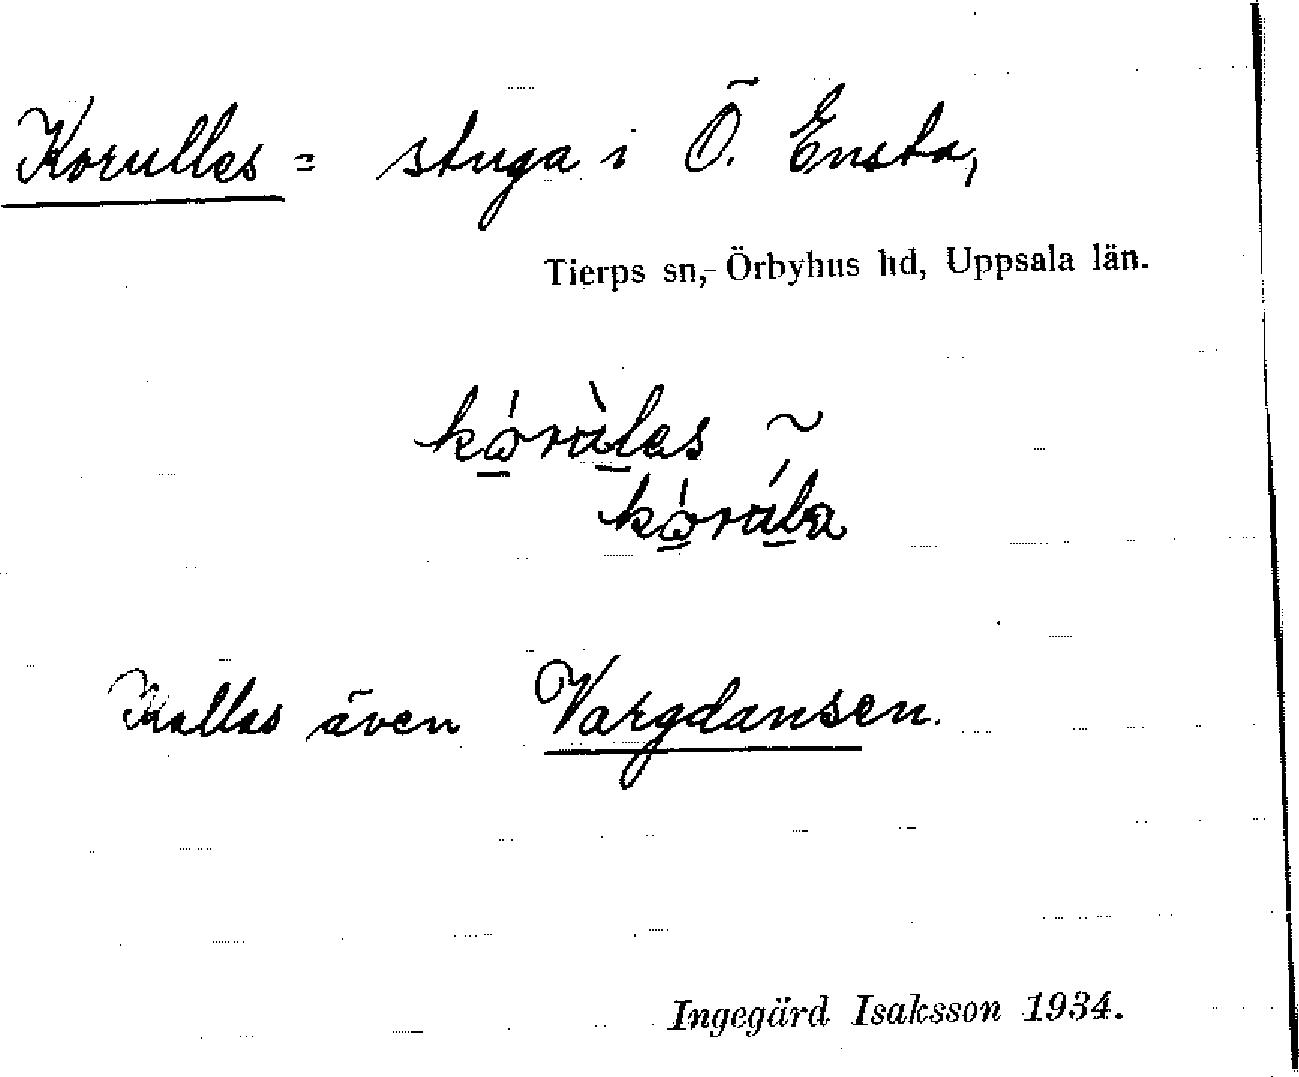 Korulles = stuga i Ö. Ensta,
Tierps sn, Örbyhus hd, Uppsala län.
kó̱rù̱les ~
kó̱rú̱la
Kallas även Vargdansen.
Ingegärd Isaksson 1934.